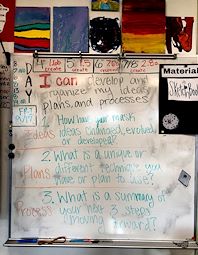 I can develop and
organize my ideas
plans, and processes
1. How have your mask
Ideas
ideas changed, evolved,
or developed?
2. What is a unique or
different technique you
Plans
have or plan to use?
3. What is a summary of
Process
your next 3 steps
moving forward?
Materials
Sketchbook